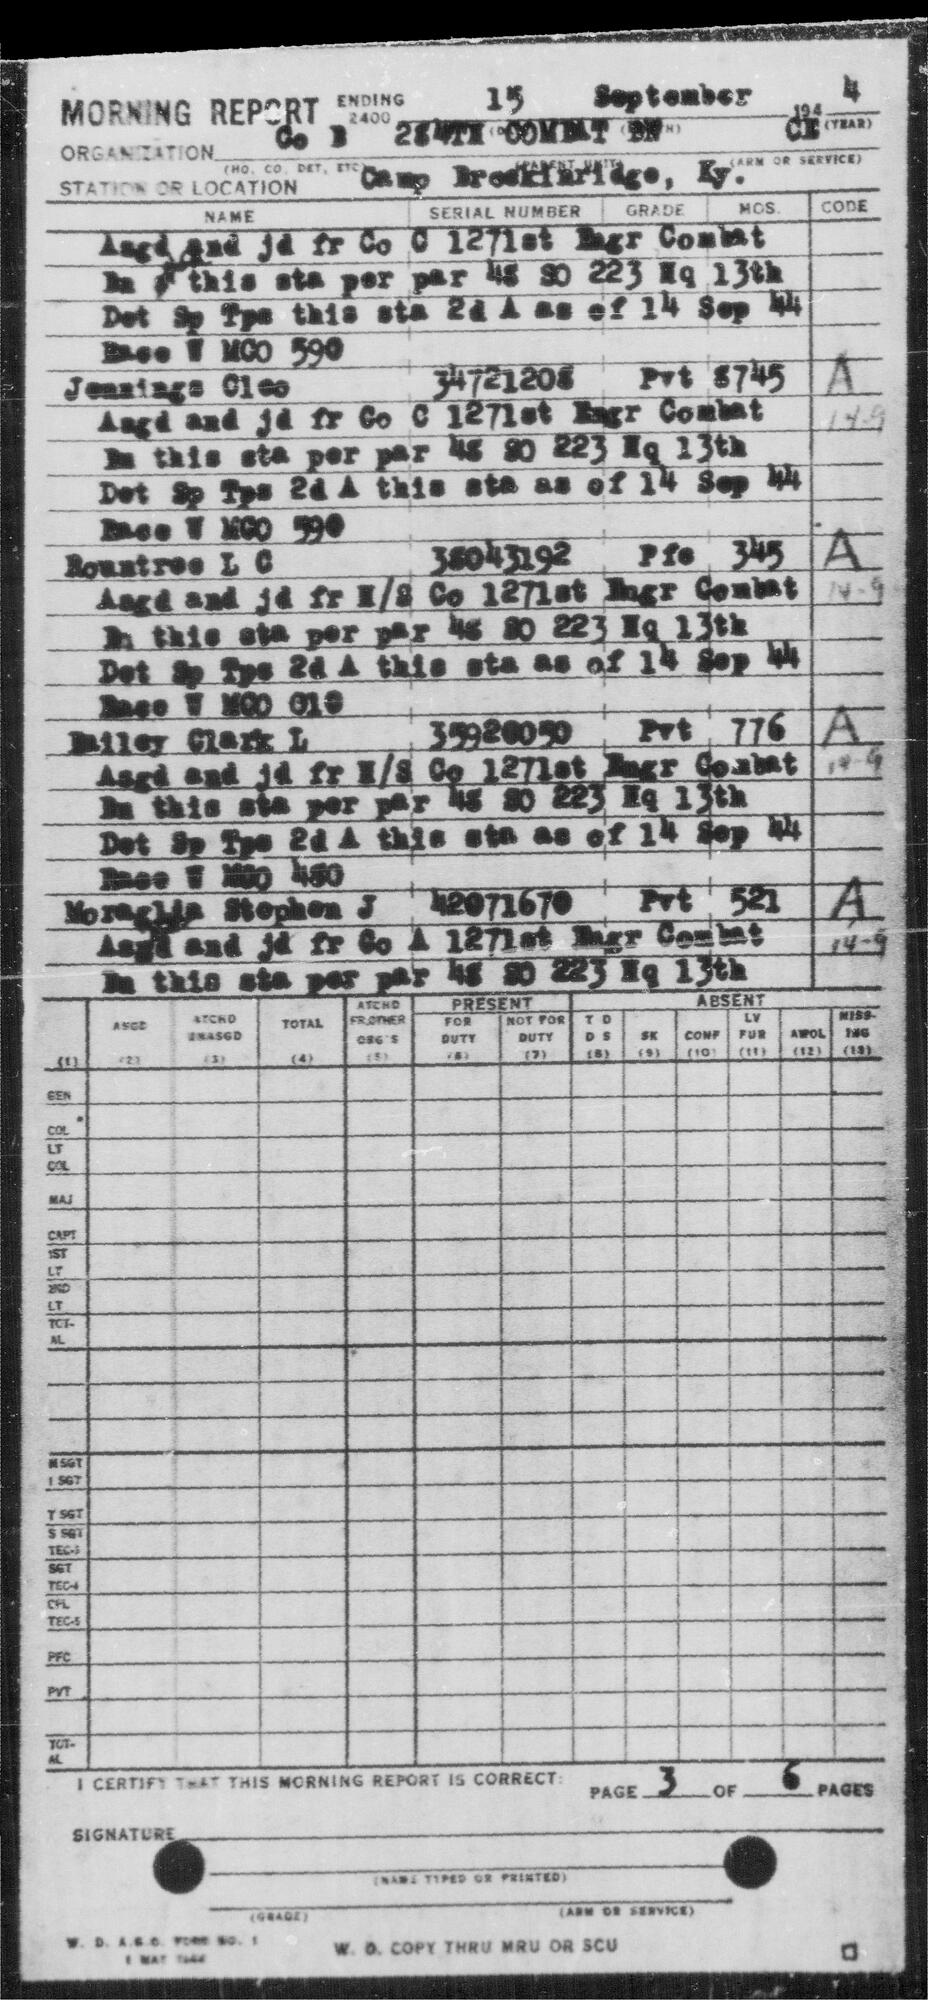 MORNING REPORT ENDING 2400 15 September 194 4
ORGANIZATION Co B 284TH COMBAT BN CE (YEAR)
(HQ. CO. DET, ETC) (PARENT UNIT) (ARM OR SERVICE)
STATION OR LOCATION Camp Breckinridge, Ky.
NAME SERIAL NUMBER GRADE MOS. CODE
Asgd and jd fr Co C 1271st Engr Combat
Bn this sta per par 48 SO 223 Hq 13th
Det Sp Tps this sta 2d A as of 14 Sep 44
Race W MCO 590
Jennings Cleo 34721208 Pvt 8745 A
Asgd and jd fr Co C 1271st Engr Combat 14-9
Bn this sta per par 48 SO 223 Hq 13th
Det Sp Tps 2d A this sta as of 14 Sep 44
Race W MCO 590
Rountree L C 38043192 Pfc 345 A
Asgd and jd fr H/S Co 1271st Engr Combat 14-9
Bn this sta per par 48 SO 223 Hq 13th
Det Sp Tps 2d A this sta as of 14 Sep 44
Race W MCO 018
Bailey Clark L 35920050 Pvt 776 A
Asgd and jd fr H/S Co 1271st Engr Combat 14-9
Bn this sta per par 48 SO 223 Hq 13th
Det Sp Tps 2d A this sta as of 14 Sep 44
Race W MCO 450
Moraglia Stephen J 42071670 Pvt 521 A
Asgd and jd fr Co A 1271st Engr Combat 14-9
Bn this sta per par 48 SO 223 Hq 13th
PRESENT ABSENT
(1) ASGD (2) ATCHD UNASGD (3) TOTAL (4) ATCHD FR OTHER ORG'S (5) FOR DUTY (6) NOT FOR DUTY (7) T D D S (8) SK (9) CONF (10) LV FUR (11) AWOL (12) MISSING (13)
GEN
COL
LT
COL
MAJ
CAPT
1ST
LT
2ND
LT
TOT-
AL
M SGT
1 SGT
T SGT
S SGT
TEC-3
SGT
TEC-4
CPL
TEC-5
PFC
PVT
TOT-
AL
I CERTIFY THAT THIS MORNING REPORT IS CORRECT:
PAGE 3 OF 6 PAGES
SIGNATURE
(NAME TYPED OR PRINTED)
(GRADE) (ARM OR SERVICE)
W. D. A.G.O. FORM NO. 1
1 MAY 1944
W. D. COPY THRU MRU OR SCU